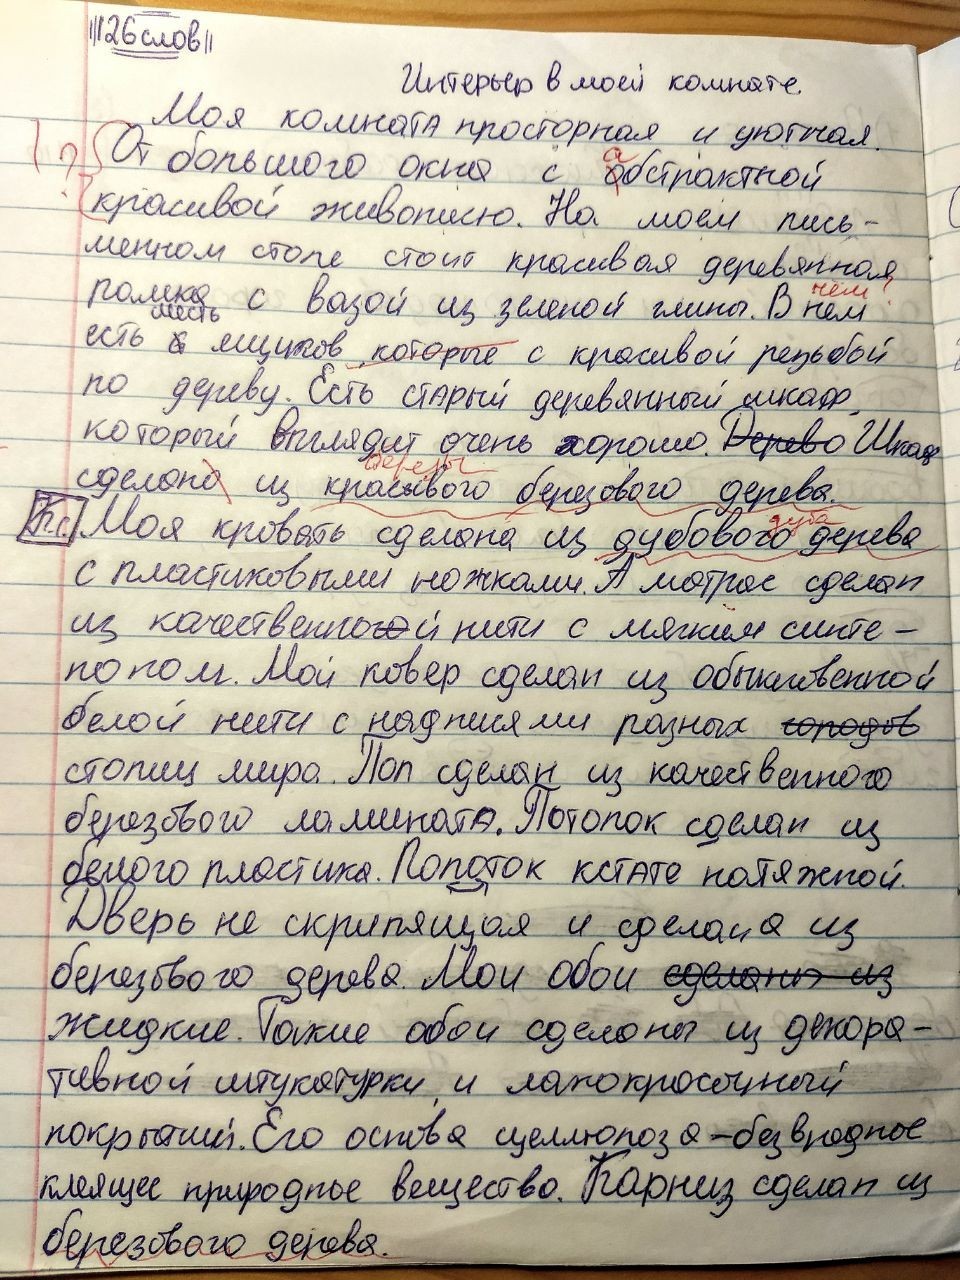 126 слов
Интерьер в моей комнате.
Моя комната просторная и уютная.
? От большого окна с абстрактной
красивой живописью. На моем пись-
менном столе стоит красивая деревянная
рамка с вазой из зеленой глины. В нем чём?
шесть
есть 6 ящиков которые с красивой резьбой
по дереву. Есть старый деревянный шкаф,
который выглядит очень хорошо. Дерево Шкаф
берёзы
сделана из красивого березового дерева.
К.с. Моя кровать сделана из дубового дерева
дуба
с пластиковыми ножками. А матрас сделан
из качественной нити с мягким синте-
попом. Мой ковер сделан из обыкновенной
белой нити с надписями разных городов
столиц мира. Пол сделан из качественного
березового ламината. Потолок сделан из
белого пластика. Полоток кстате натяжной.
Дверь не скрипящая и сделана из
березового дерева. Мои обои сделаны из
жидкие. Такие обои сделаны из декора-
тивной штукатурки и лакокрасочный
покрытий. Его основа целлюлоза - безвредное
клеящее природное вещество. Карниз сделан из
березового дерева.